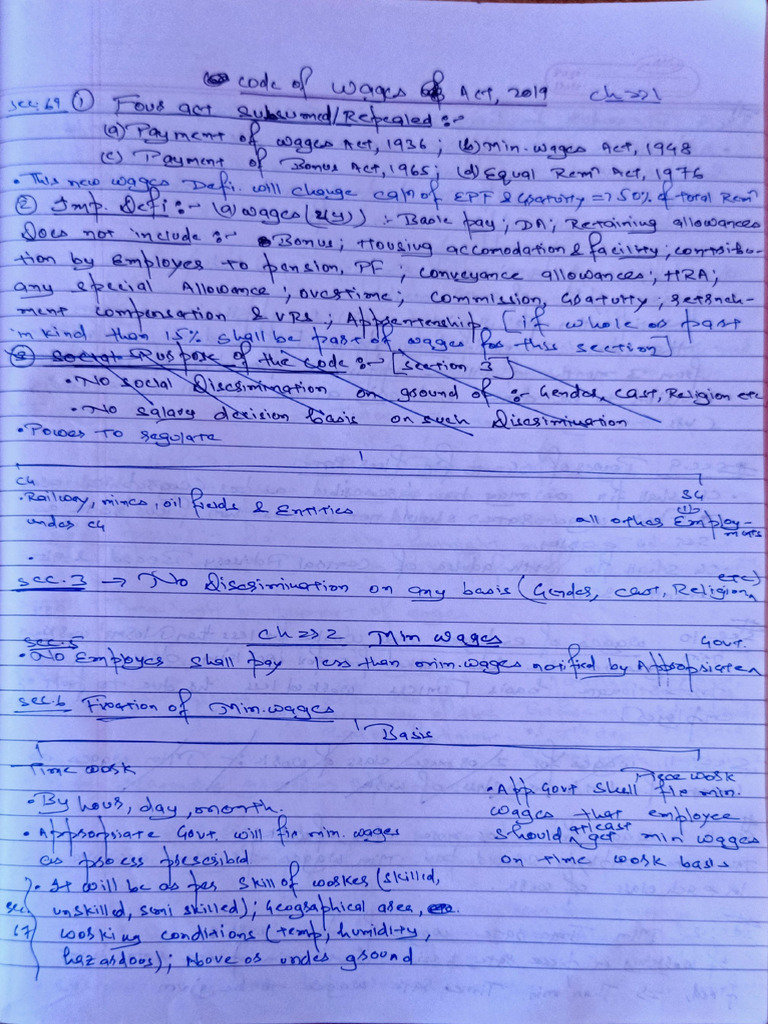 code of wages Act, 2019 ch⇒1
sec.69 ① Four act subsumed/Repealed :-
(a) Payment of wages Act, 1936 ; (b) Min. wages Act, 1948
(c) Payment of Bonus Act, 1965 ; (d) Equal Remⁿ Act, 1976
• This new wages Defi. will change calⁿ of EPF & Gratuity => 50% of total Remⁿ
② Imp. Defi :- (a) wages (2(y)) :- Basic pay ; DA ; Retaining allowances
Does not include :- Bonus ; Housing accomodation & facility ; contribu-
tion by Employer to pension, PF ; conveyance allowances ; HRA ;
any special Allowance ; overtime ; commission, Gratuity ; retrench-
ment compensation & VRS ; Apprenticeship [if whole or part
in kind than 15% shall be part of wages for this section]
② social Purpose of the code :- [section 3]
• No social Discrimination on ground of :- Gender, cast, Religion etc
• No salary decision basis on such Discrimination
• Power to regulate
C4
S4
• Railway, mines, oil fields & Entities
under C4
all other Employ-
ments
•
sec.3 → No Discrimination on any basis (Gender, cast, Religion, etc)
ch⇒2 Min wages
sec.5
• No Employer shall pay less than min. wages notified by Appropriate Govt.
sec.6 Fixation of Min. wages
Basis
Time work
Piece work
• By hour, day, month.
• Appropriate Govt. will fix min. wages
as process prescribed
• It will be as per skill of worker (skilled,
sec unskilled, semi skilled) ; Geographical area,
6(7) working conditions (temp, humidity,
hazardoos) ; Above or under ground
• App Govt shall fix min.
wages that employee
should atleast get min wages
on time work basis